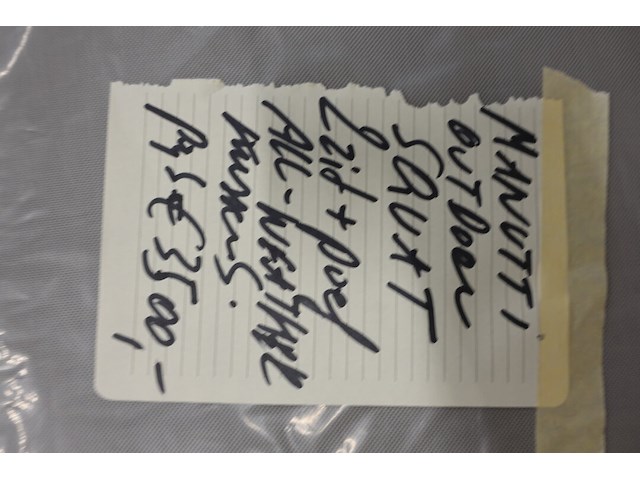 MANUTTI
OUTDOOR
SQUAT
2zit + poef
ALL-WEATHER
kussens.
€ 3500,-